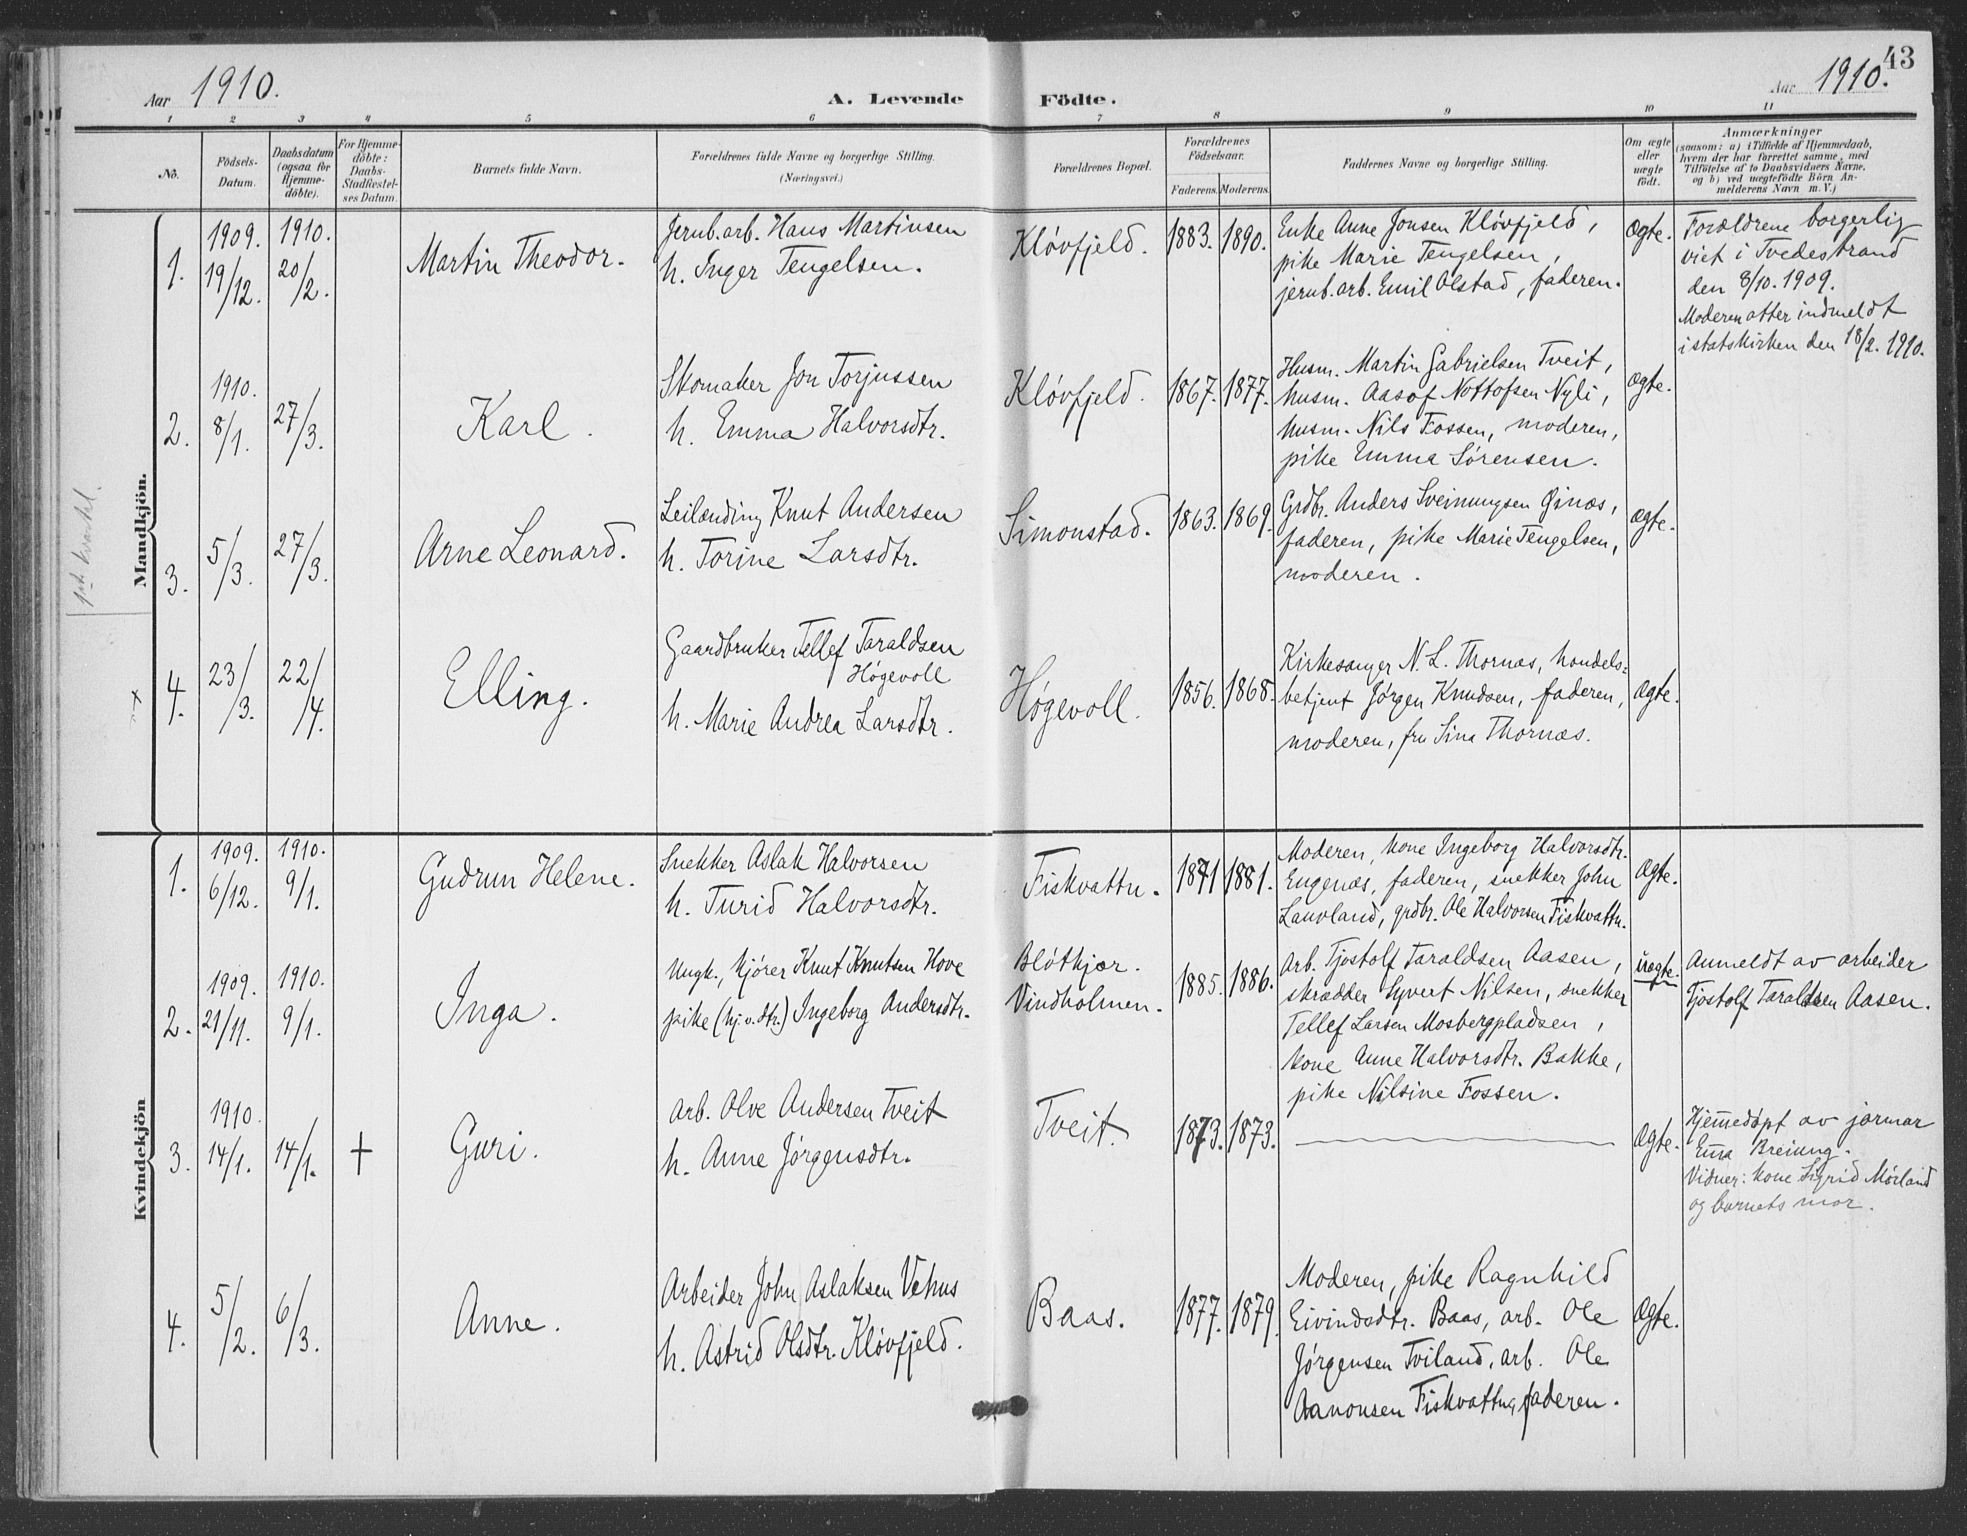 43
Aar 1910.
A. Levende Födte.
Aar 1910.
1 2 3 4 5 6 7 8 9 10 11
No.
Födsels-
Datum.
Daabsdatum
(ogsaa for
Hjemme-
döbte).
For Hjemme-
döbte:
Daabs-
Stadfæstel-
ses Datum.
Barnets fulde Navn.
Forældrenes fulde Navne og borgerlige Stilling.
(Næringsvei.)
Forældrenes Bopæl.
Forældrenes
Födselsaar.
Faderens. Moderens.
Faddernes Navne og borgerlige Stilling.
Om ægte
eller
uægte
födt.
Anmærkninger
(saasom: a) i Tilfælde af Hjemmedaab,
hvem der har forrettet samme, med
Tilföielse af to Daabsvidners Navne,
og b) ved uægtefödte Börn An-
melderens Navn m. V.)
Mandkjön.
1st kvartal.
1.
1909.
19/12.
1910.
20/2.
Martin Theodor.
Jernb.arb. Hans Martinsen
h. Inger Tengelsen.
Kløvfjeld.
1883. 1890.
Enke Anne Jonsen Kløvfjeld,
pike Marie Tengelsen,
jernb.arb. Emil Olstad, faderen.
Ægte.
Forældrene borgerlig
viet i Tvedestrand
den 8/10. 1909.
Moderen atter indmeldt
i statskirken den 18/2. 1910.
2.
1910.
8/1.
27/3.
Karl.
Skomaker Jon Torjussen
h. Emma Halvorsdtr.
Kløvfjeld.
1867. 1877.
Husm. Martin Gabrielsen Tveit,
husm. Aasof Nottofsen Nyli,
husm. Nils Fossen, moderen,
pike Emma Sørensen.
Ægte.
3.
5/3.
27/3.
Arne Leonard.
Leilænding Knut Andersen
h. Torine Larsdtr.
Simonstad.
1863. 1869.
Grdbr. Anders Sveinungsen Øinæs,
faderen, pike Marie Tengelsen,
moderen.
Ægte.
4.
23/3.
22/4.
Elling.
Gaardbruker Tellef Taraldsen
Høgevoll
h. Marie Andrea Larsdtr.
Høgevoll.
1856. 1868.
Kirkesanger N. L. Thornæs, handels-
betjent Jørgen Knudsen, faderen,
moderen, fru Sina Thornæs.
Ægte.
Kvindekjön
1.
1909.
6/12.
1910.
9/1.
Gudrun Helene.
Snekker Aslak Halvorsen
h. Turid Halvorsdtr.
Fiskvattn.
1871 1881.
Moderen, kone Ingeborg Halvorsdtr.
Engenæs, faderen, snekker John
Lauvland, grdbr. Ole Halvorsen Fiskvattn.
Ægte.
2.
1909.
21/11.
1910.
9/1.
Inga.
Ungk., kjører Knut Knutsen Hove
pike (hj.v.dtr.) Ingeborg Andersdtr.
Bløtkjær.
Vindholmen.
1885. 1886.
Arb. Tjostolf Taraldsen Aasen,
skrædder Syvert Nilsen, snekker
Tellef Larsen Mosbergpladsen,
kone Anne Halvorsdtr. Bakke,
pike Nilsine Fossen.
uægte.
Anmeldt av arbeider
Tjostolf Taraldsen Aasen.
3.
1910.
14/1.
14/1.
+
Guri.
Arb. Olve Andersen Tveit
h. Anne Jørgensdtr.
Tveit.
1873. 1873.
Ægte.
Hjemmedøpt av jormar
Breiung.
Vidner: kone Sigrid Mørland
og barnets mor.
4.
5/2.
6/3.
Anne.
Arbeider John Aslaksen Vehus
h. Astrid Olsdtr. Kløvfjeld.
Baas.
1877. 1879.
Moderen, pike Ragnhild
Eivindsdtr. Baas, arb. Ole
Jørgensen Tviland, arb. Ole
Aanonsen Fiskvattn, faderen.
Ægte.